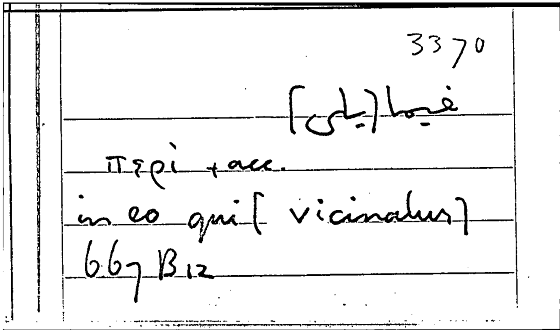 3370
فيما [يلى]
περὶ + acc.
in eo qui [vicinatus]
667 B 12